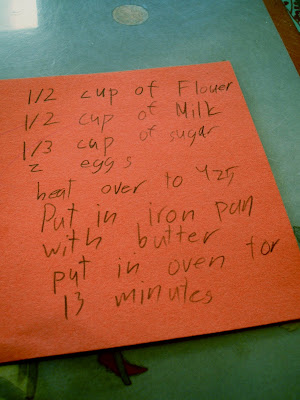 1/2 cup of Flouer
1/2 cup of Milk
1/3 cup of sugar
2 eggs
heat over to 425
Put in iron pan
with butter
put in oven for
13 minutes